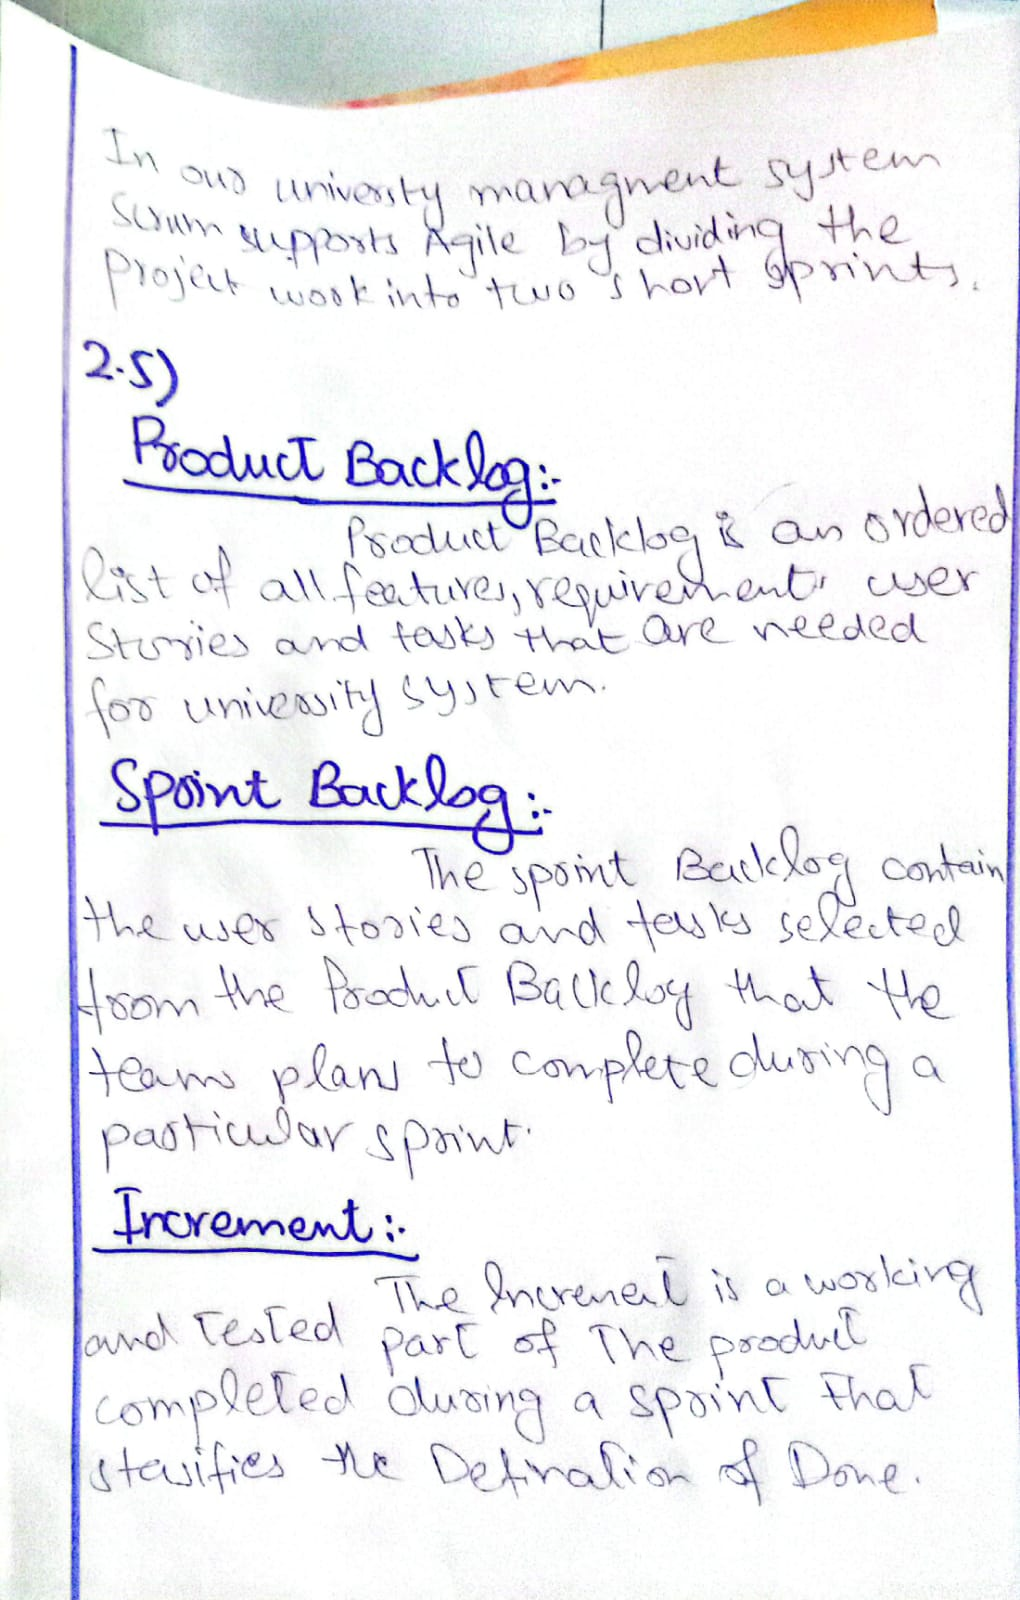 In our univeosty managment system
Scrum supports Agile by dividing the
project work into two short sprints.
2.5)
Product Backlog:-
Product Backlog is an ordered
list of all features, requirements user
Stories and tasks that are needed
for university system.
Sprint Backlog:-
The sprint Backlog contain
the user stories and tasks selected
from the Product Backlog that the
team plans to complete during a
particular sprint.
Increment:-
The Increment is a working
and tested part of The product
completed during a sprint that
stasifies the Defination of Done.